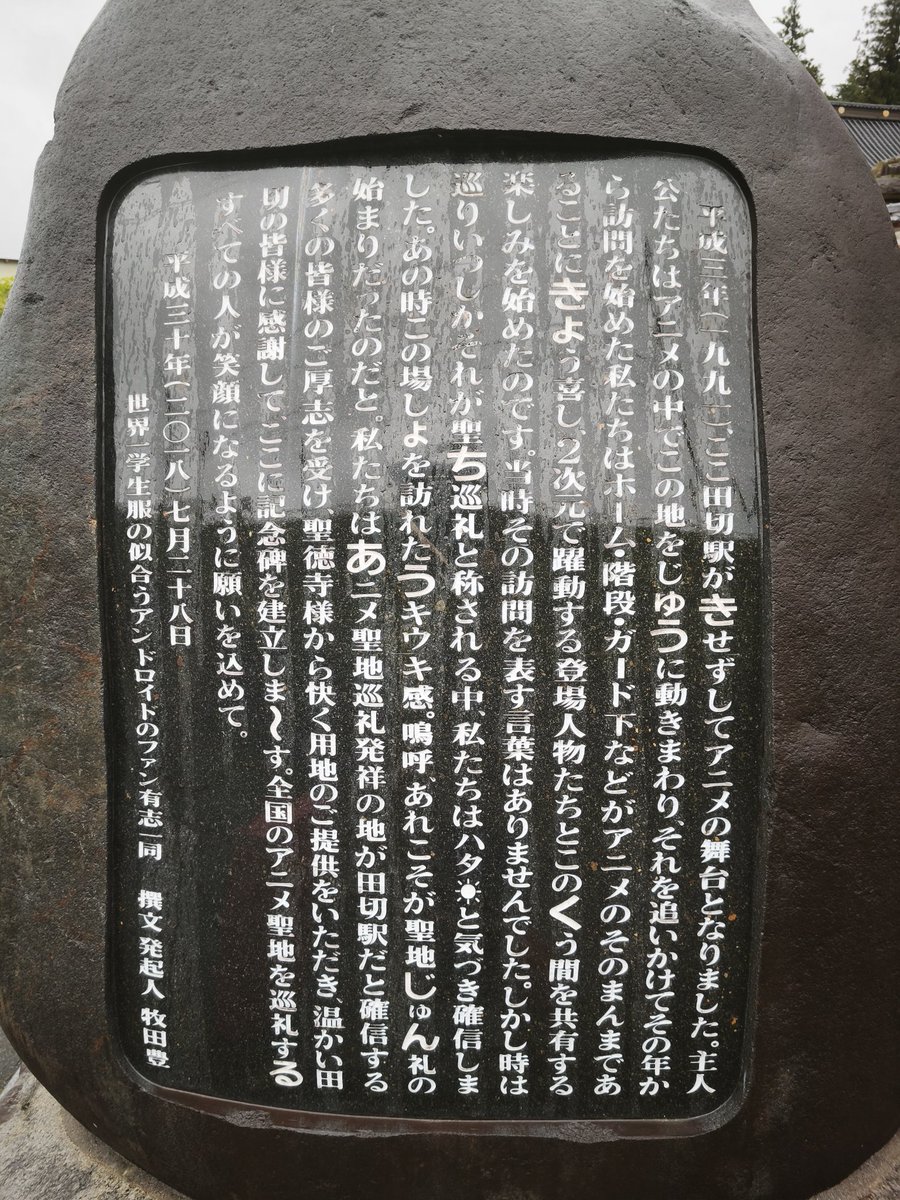 平成三年(一九九一)、ここ田切駅がきせずしてアニメの舞台となりました。主人
公たちはアニメの中でこの地をじゆうに動きまわり、それを追いかけてその年か
ら訪問を始めた私たちはホーム・階段・ガード下などがアニメのそのまんまであ
ることにきょう喜し、2次元で躍動する登場人物たちとこのくう間を共有する
楽しみを始めたのです。当時その訪問を表す言葉はありませんでした。しかし時は
巡りいつしかそれが聖ち巡礼と称される中、私たちはハタ☀と気づき確信しま
した。あの時この場しょを訪れたうキウキ感。嗚呼、あれこそが聖地じゅん礼の
始まりだったのだと。私たちはあニメ聖地巡礼発祥の地が田切駅だと確信する
多くの皆様のご厚志を受け、聖徳寺様から快く用地のご提供をいただき、温かい田
切の皆様に感謝して、ここに記念碑を建立しま〜す。全国のアニメ聖地を巡礼する
すべての人が笑顔になるように願いを込めて。
平成三十年(二〇一八)七月二十八日
世界一学生服の似合うアンドロイドのファン有志一同 撰文発起人 牧田豊